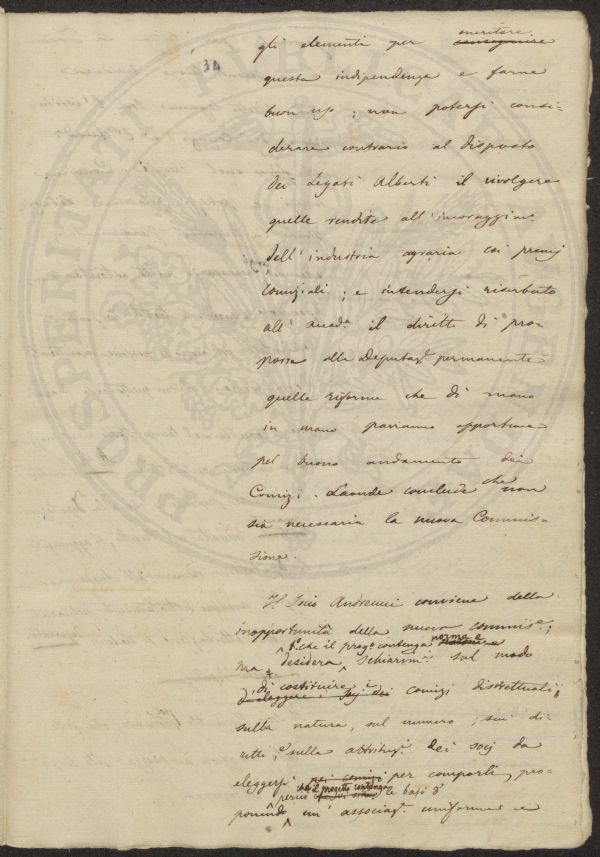 34
gli elementi per meritare conseguire
questa indipendenza e farne
buon uso; non potersi consi-
derare contrario al disposto
dei Legati Alberti il rivolgere
quelle rendite all'incoraggim.
dell'industria agraria coi premj
Comiziali; e intendersi riserbato
all'Accad.a il diritto di pro-
porre alla Deputaz.e permanente
quelle riforme che di mano
in mano parranno opportune
pel buono andamento dei
Comizi. Laonde conclude che non
sia necessaria la nuova Commis-
sione.
Il Socio Andreucci conviene della
inopportunità della nuova commiss.e;
e che il prog.o contenga norme e
ma desidera schiarim.i sul modo
di costituire i
d'eleggere i socj dei comizi distrettuali,
sulla natura, sul numero, sui di-
ritti, e sulle attribuz.i dei socj da
eleggersi pei comizj per comporli, pro-
che il progetto contenga
perciò le basi d'
ponendo un'associaz.e uniforme e
PROSPERITATI PUBLICAE